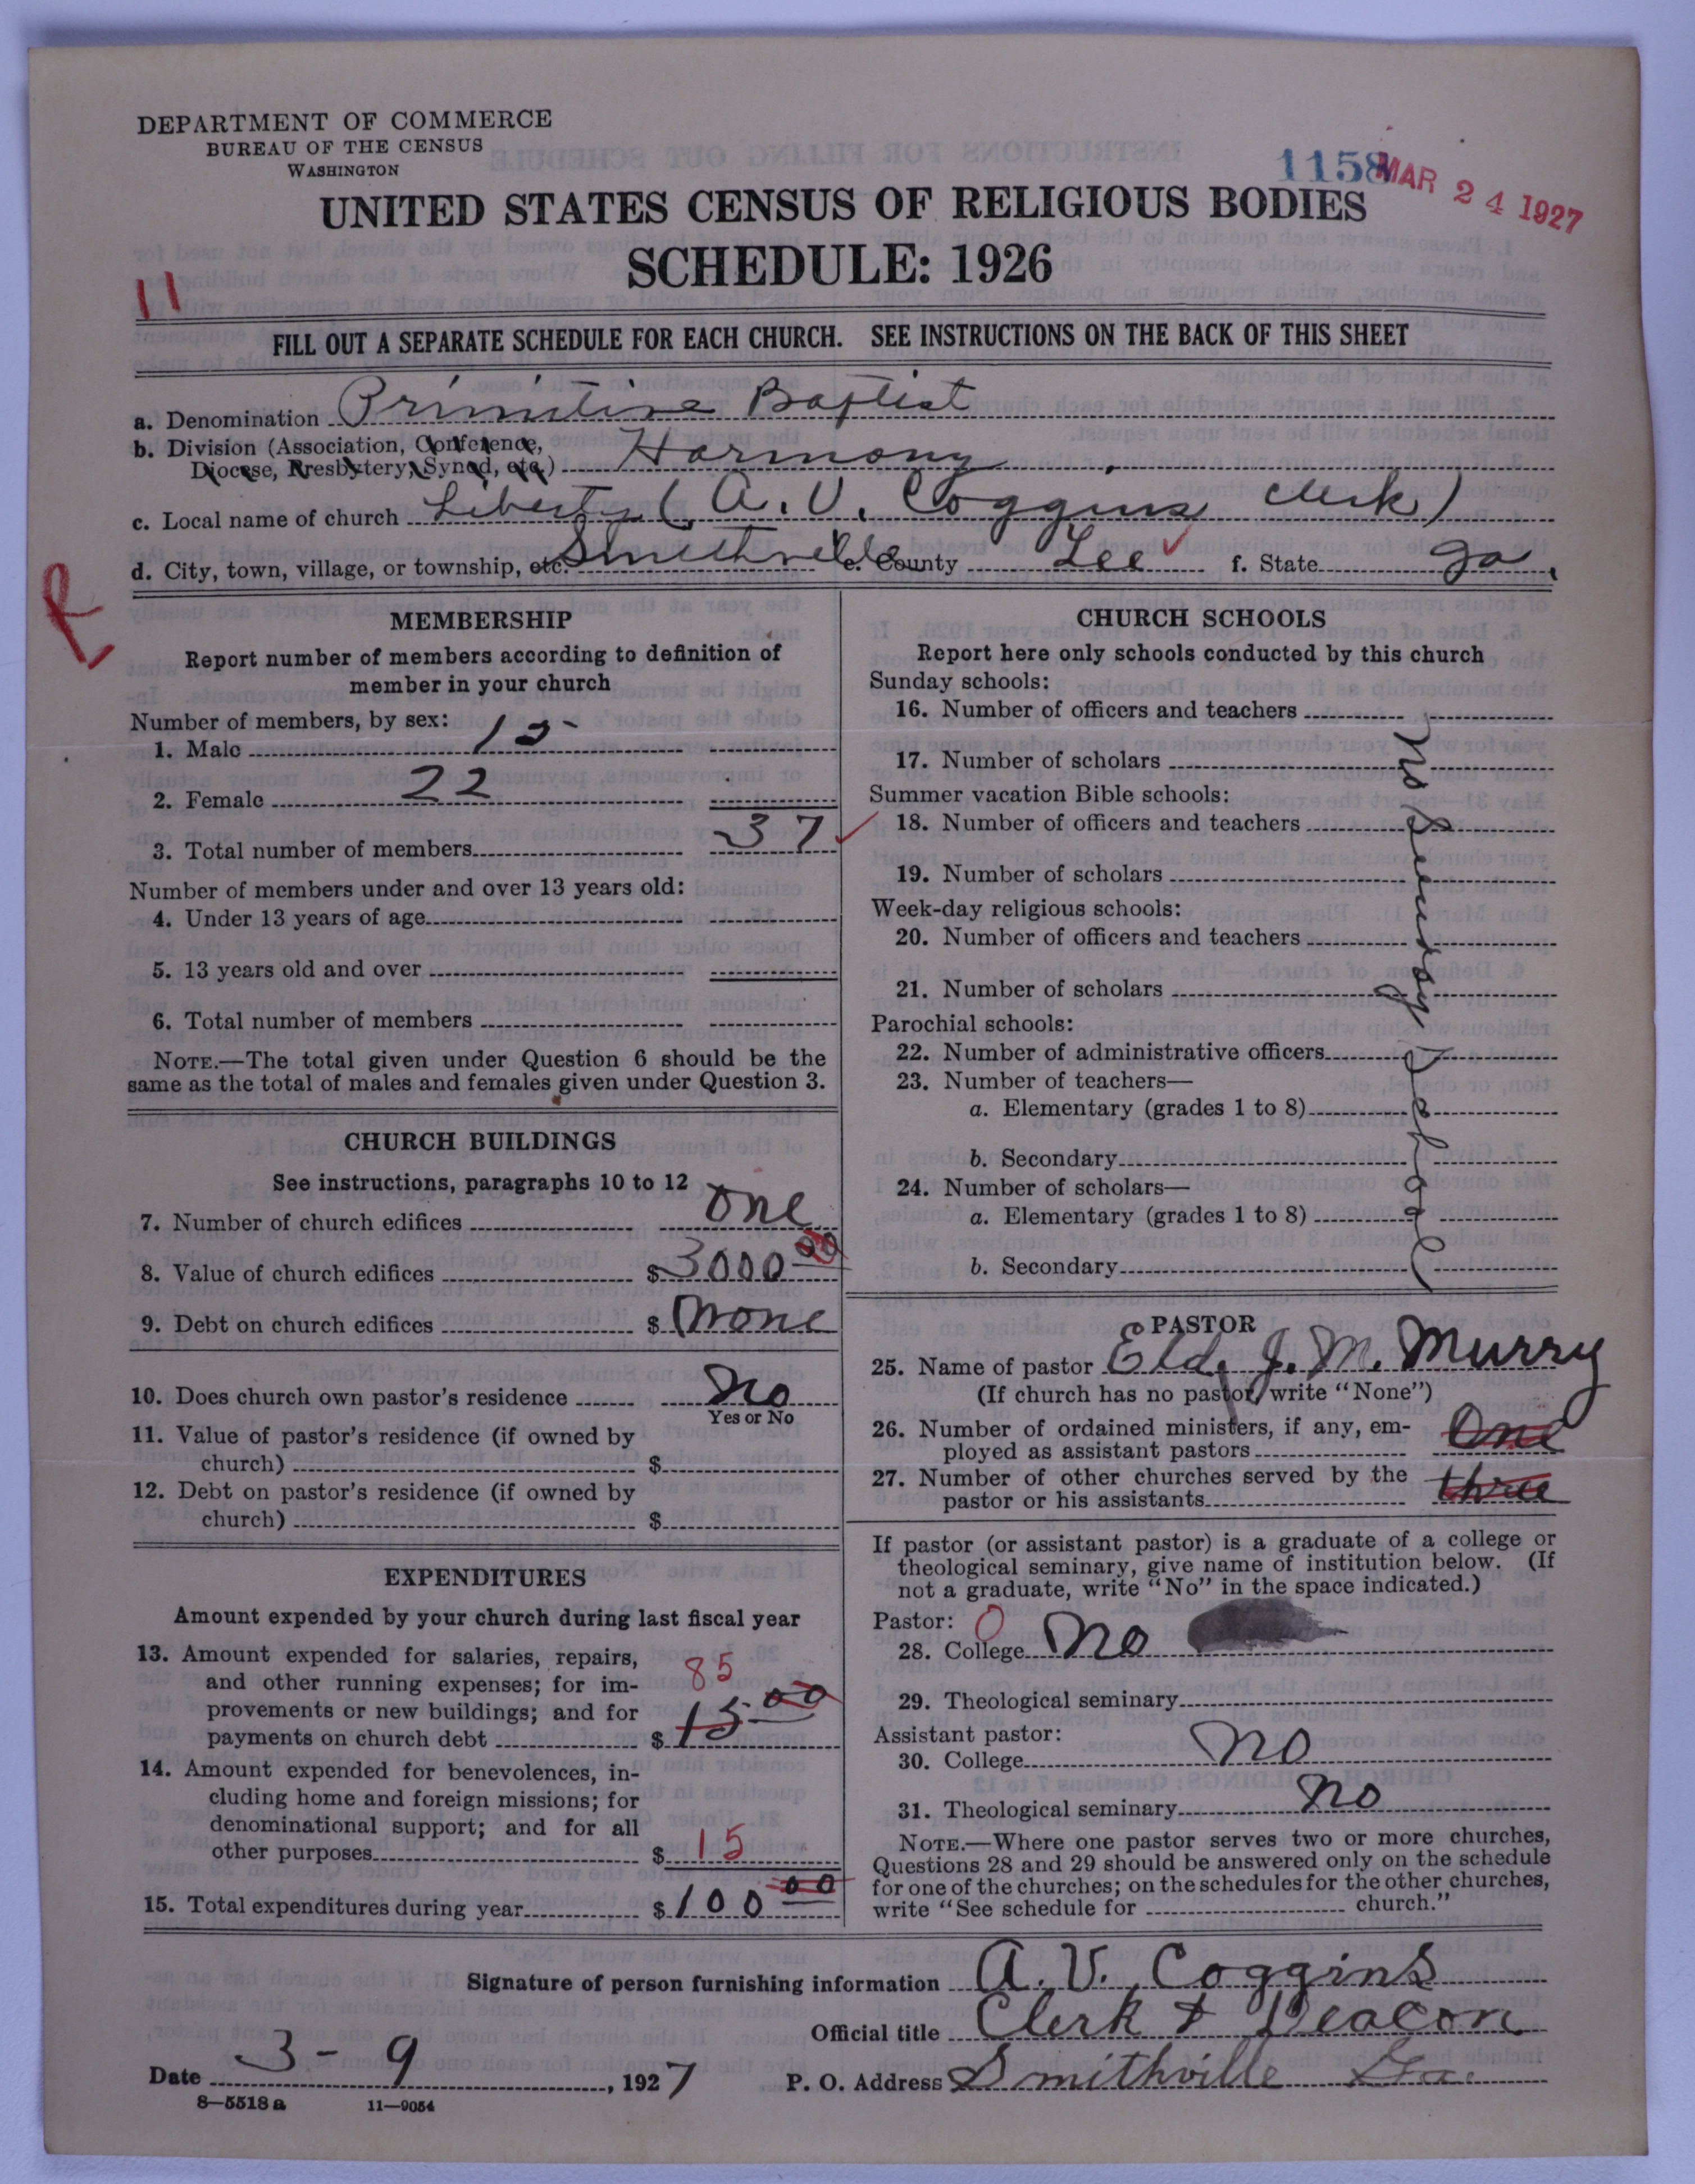 DEPARTMENT OF COMMERCE
BUREAU OF THE CENSUS
WASHINGTON
1158
MAR 24 1927
UNITED STATES CENSUS OF RELIGIOUS BODIES
SCHEDULE: 1926
11
FILL OUT A SEPARATE SCHEDULE FOR EACH CHURCH. SEE INSTRUCTIONS ON THE BACK OF THIS SHEET
a. Denomination Primitive Baptist
b. Division (Association, Conference,
Diocese, Presbytery, Synod, etc.) Harmony
c. Local name of church Liberty (A. V. Coggins Clerk)
d. City, town, village, or township, etc. Smithville e. County Lee f. State Ga.
R
MEMBERSHIP
Report number of members according to definition of
member in your church
Number of members, by sex:
1. Male 15
2. Female 22
3. Total number of members 37
Number of members under and over 13 years old:
4. Under 13 years of age
5. 13 years old and over
6. Total number of members
NOTE.—The total given under Question 6 should be the
same as the total of males and females given under Question 3.
CHURCH BUILDINGS
See instructions, paragraphs 10 to 12
7. Number of church edifices one
8. Value of church edifices $3000 00
9. Debt on church edifices $ None
10. Does church own pastor's residence No
Yes or No
11. Value of pastor's residence (if owned by
church) $
12. Debt on pastor's residence (if owned by
church) $
EXPENDITURES
Amount expended by your church during last fiscal year
13. Amount expended for salaries, repairs,
and other running expenses; for im-
provements or new buildings; and for
payments on church debt $ 85 15 00
14. Amount expended for benevolences, in-
cluding home and foreign missions; for
denominational support; and for all
other purposes $ 15
15. Total expenditures during year $ 100 00
CHURCH SCHOOLS
Report here only schools conducted by this church
Sunday schools:
16. Number of officers and teachers
17. Number of scholars
Summer vacation Bible schools:
18. Number of officers and teachers
19. Number of scholars
Week-day religious schools:
20. Number of officers and teachers
21. Number of scholars
Parochial schools:
22. Number of administrative officers
23. Number of teachers—
a. Elementary (grades 1 to 8)
b. Secondary
24. Number of scholars—
a. Elementary (grades 1 to 8)
b. Secondary
No Sunday School
PASTOR
25. Name of pastor Eld. J. M. Murry
(If church has no pastor, write "None")
26. Number of ordained ministers, if any, em-
ployed as assistant pastors One
27. Number of other churches served by the
pastor or his assistants three
If pastor (or assistant pastor) is a graduate of a college or
theological seminary, give name of institution below. (If
not a graduate, write "No" in the space indicated.)
Pastor: 0
28. College No
29. Theological seminary
Assistant pastor:
30. College No
31. Theological seminary No
NOTE.—Where one pastor serves two or more churches,
Questions 28 and 29 should be answered only on the schedule
for one of the churches; on the schedules for the other churches,
write "See schedule for church."
Signature of person furnishing information A. V. Coggins
Official title Clerk & Deacon
Date 3-9, 1927 P. O. Address Smithville Ga.
8—5518 a 11—9054